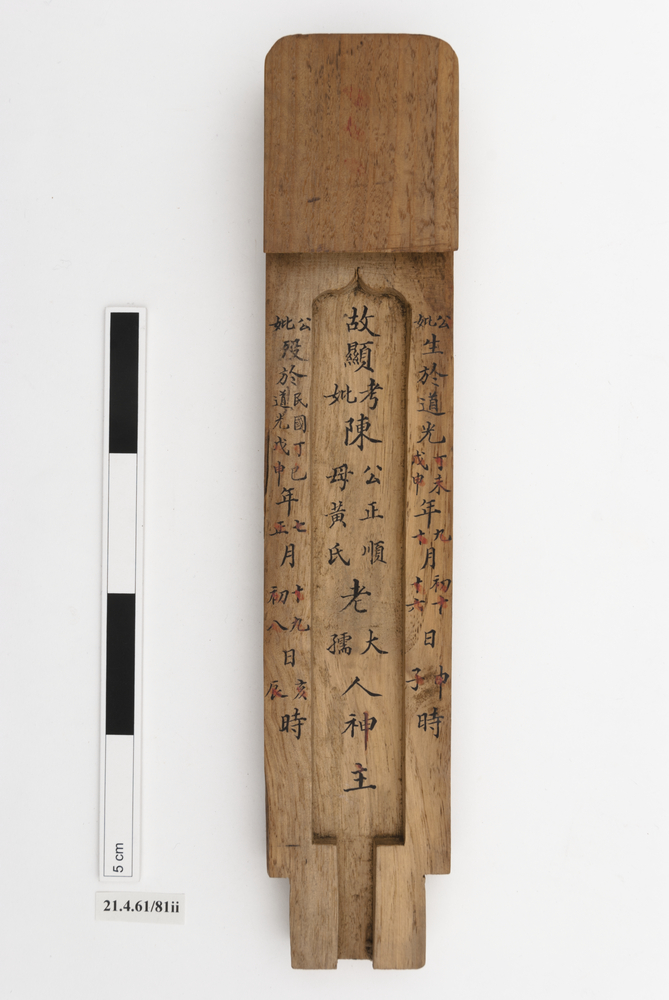 公妣生於道光丁未戊申年九十月初十十六日申子時
故顯考妣陳公正順母黃氏老大孺人神主
公妣歿於民國丁巳道光戊申年七正月十九初八日亥辰時
5 cm
21.4.61/81ii